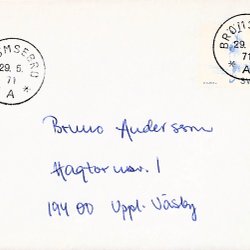 BRÖMSEBRO
29. 5.
71
* A *
BRÖMS
29.
71
* A
Bruno Andersson
Hagtornsv. 1
194 00 Uppl. Väsby